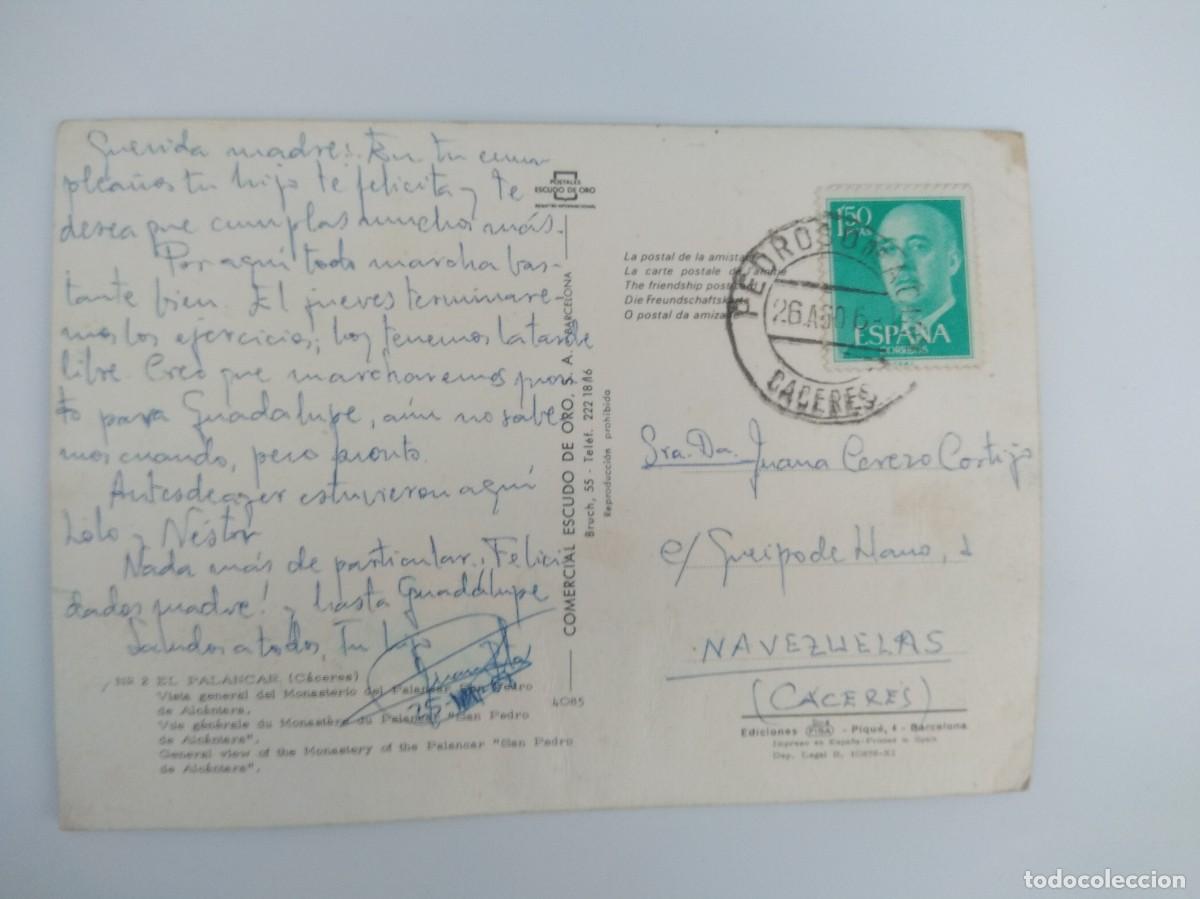 Querida madre: En tu cum-
pleaños tu hijo te felicita y te
desea que cumplas muchos más.
Por aquí todo marcha bas-
tante bien. El jueves terminare-
mos los ejercicios; hoy tenemos la tarde
libre. Creo que marcharemos pron-
to para Guadalupe, aún no sabe-
mos cuando, pero pronto.
Antesdeayer estuvieron aquí
Lolo y Néstor
Nada más de particular. ¡Felici
dades madre! y hasta Guadalupe
Saludos a todos, Tu hijo
25-VIII
Nº 2 EL PALANCAR (Cáceres)
Vista general del Monasterio del Palancar San Pedro
de Alcántara.
Vue générale du Monastère du Palancar "San Pedro
de Alcántara".
General view of the Monastery of the Palancar "San Pedro
de Alcántara".
4085
POSTALES
ESCUDO DE ORO
REGISTRO INTERNACIONAL
COMERCIAL ESCUDO DE ORO, S. A. BARCELONA
Bruch, 55 - Teléf. 222 18 16
Reproducción prohibida
La postal de la amistad
La carte postale de l'amitié
The friendship postcard
Die Freundschaftskarte
O postal da amizade
1,50
PTAS
ESPAÑA
CORREOS
PEDROSO DE ACIM
26 AGO 6
CACERES
Sra. Da. Juana Cerezo Cortijo
c/ Queipo de Llano, 2
NAVEZUELAS
(CÁCERES)
Ediciones FISA - Piqué, 4 - Barcelona
Impreso en España-Printed in Spain
Dep. Legal B. 10876-XI
todocoleccion